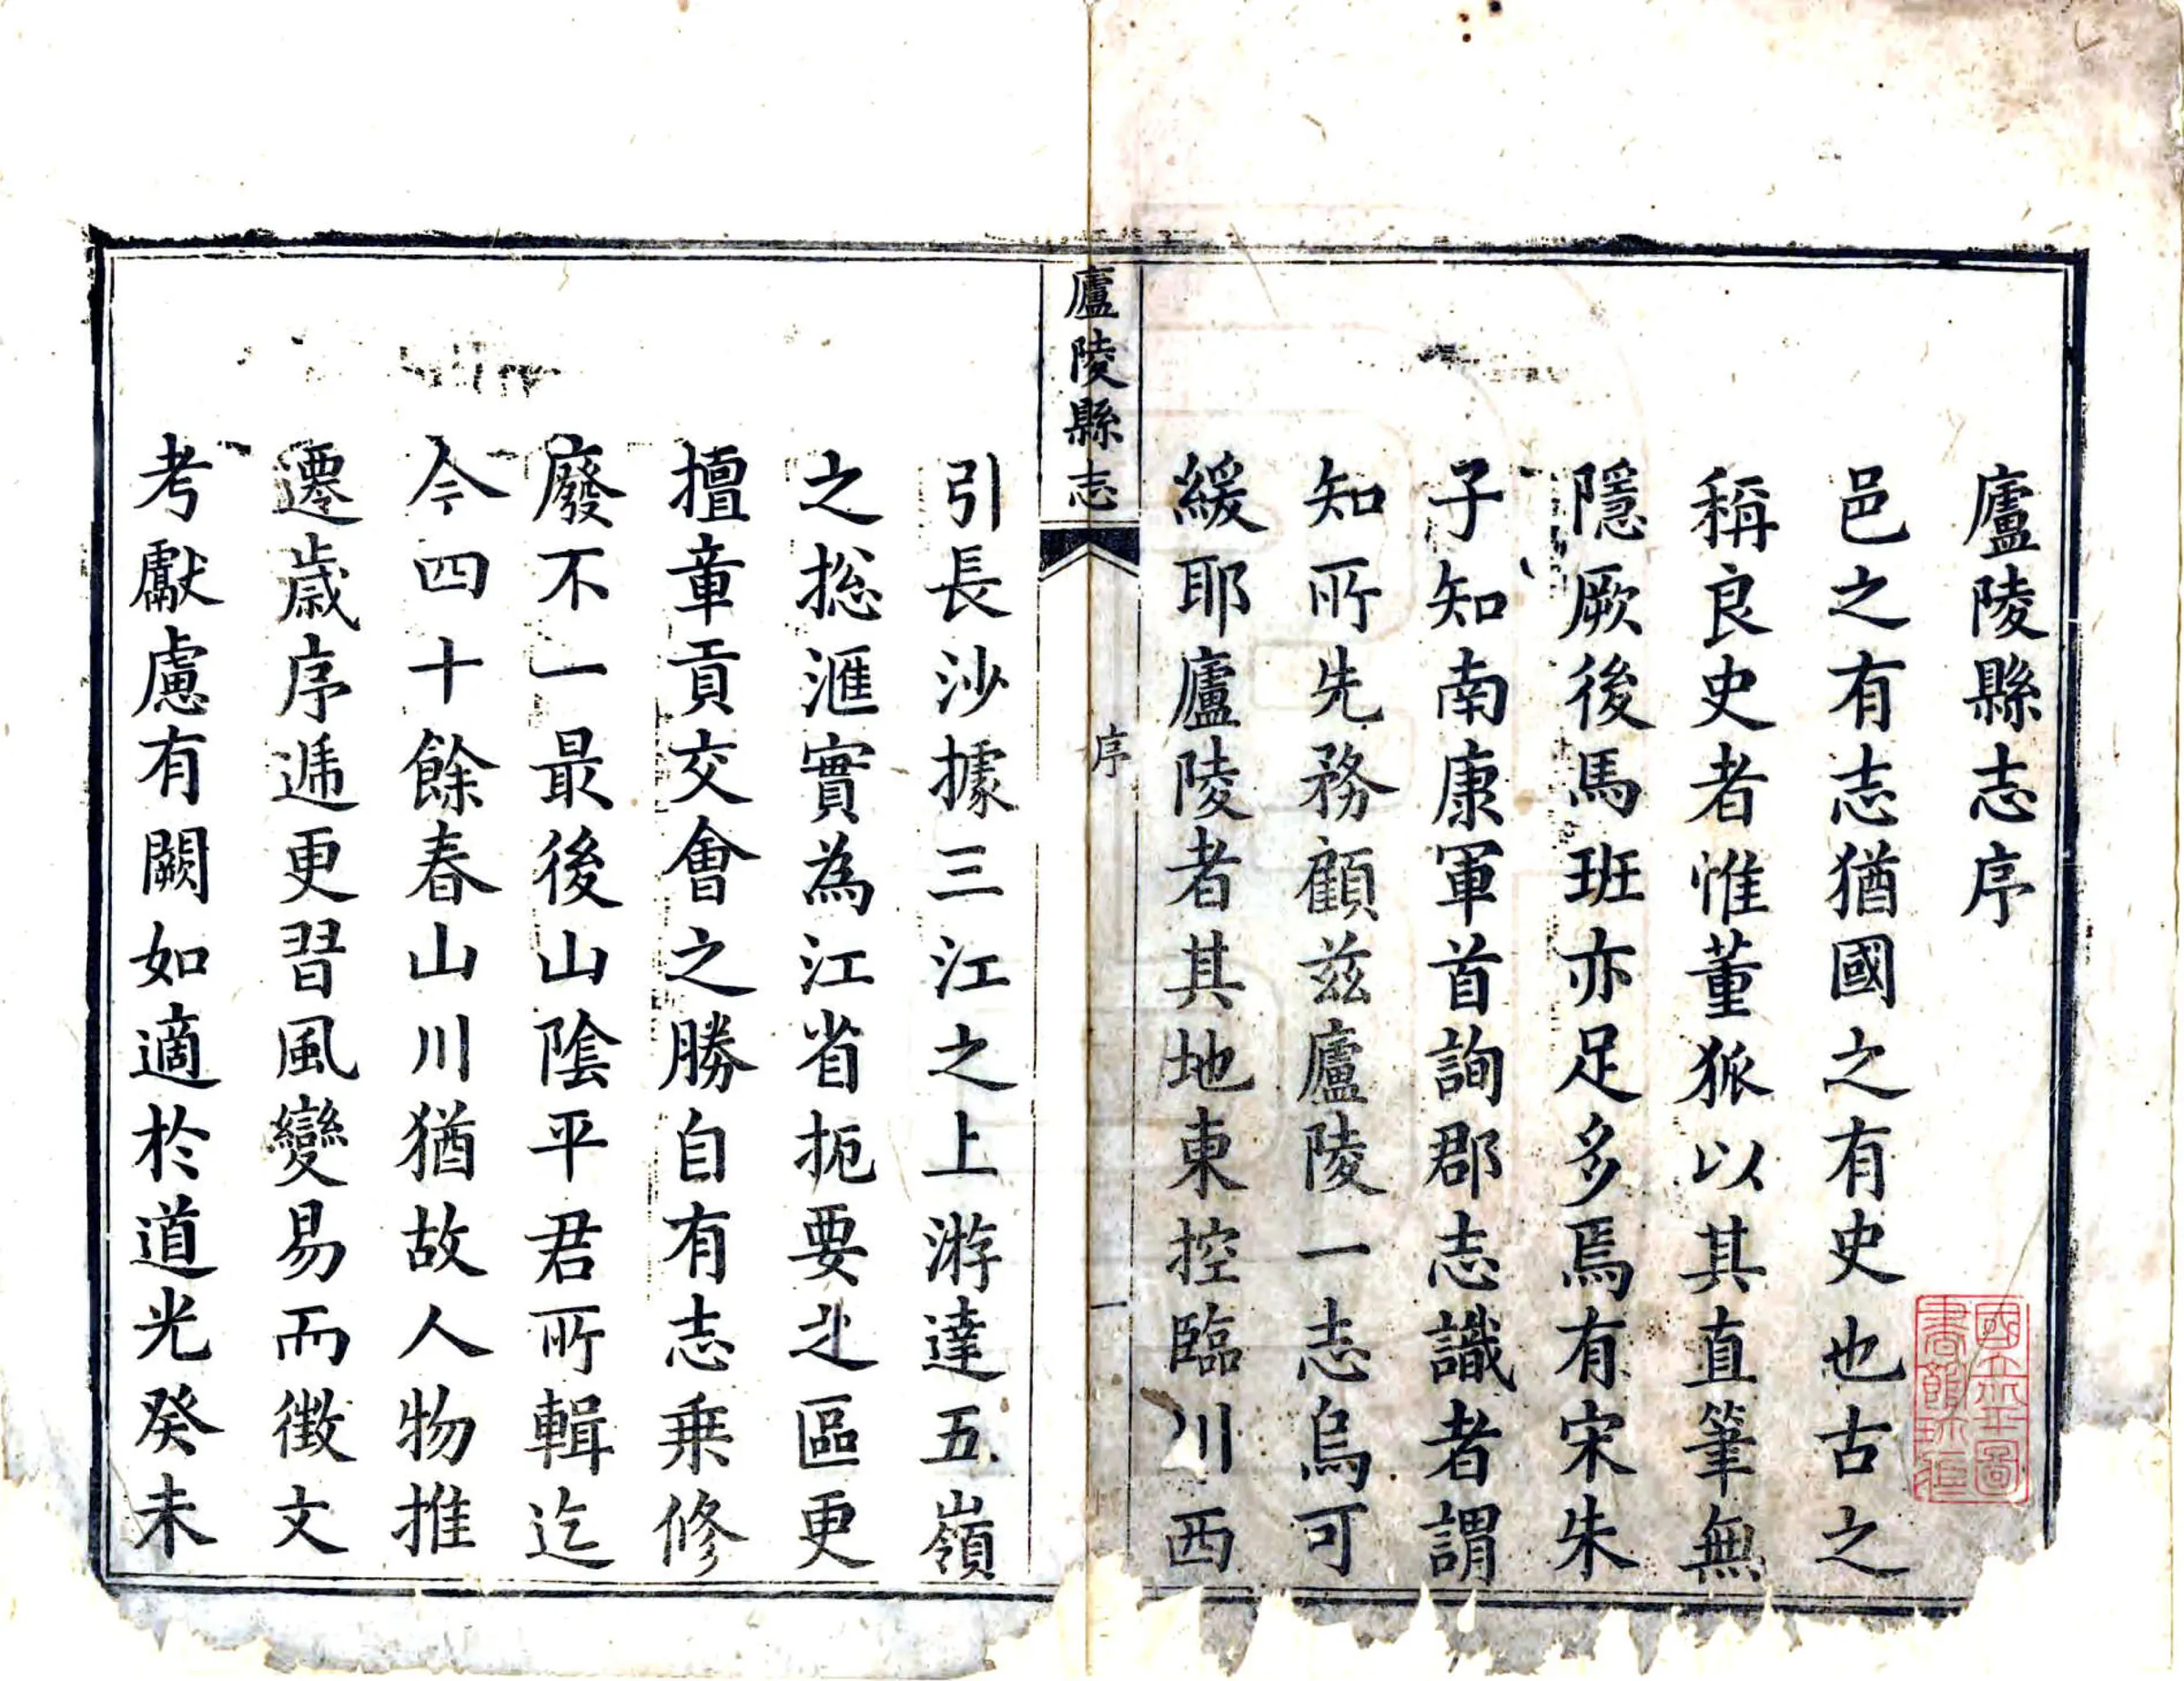 廬陵縣志序
邑之有志猶國之有史也古之
稱良史者惟董狐以其直筆無
隱厥後馬班亦足多焉有宋朱
子知南康軍首詢郡志識者謂
知所先務顧茲廬陵一志烏可
緩耶廬陵者其地東控臨川西
廬陵縣志
序
一
引長沙據三江之上游達五嶺
之捴滙實為江省扼要之區更
擅章貢交會之勝自有志乗修
廢不一最後山陰平君所輯迄
今四十餘春山川猶故人物推
遷歲序遞更習風變易而徵文
考獻慮有闕如適於道光癸未
國立北平圖
書館珍藏